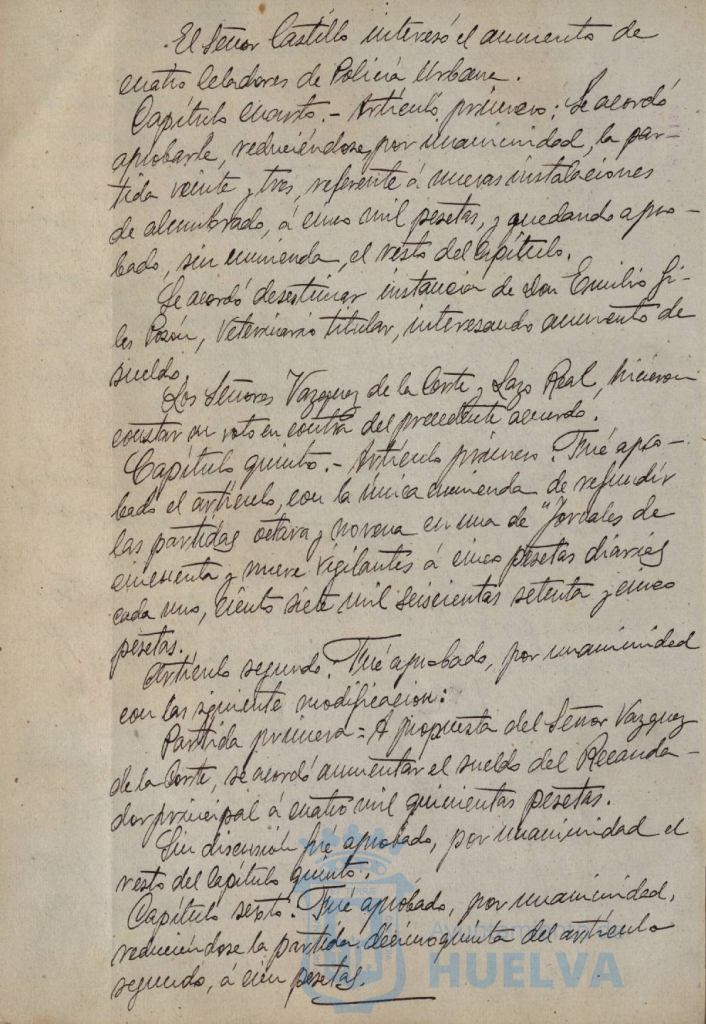 El Señor Castillo interesó el aumento de
cuatro Celadores de Policía Urbana.
Capítulo cuarto.- Artículo primero: Se acordó
aprobarle, reduciéndose, por unanimidad, la par-
tida veinte y tres, referente á nuevas instalaciones
de alumbrado, á cinco mil pesetas, y quedando apro-
bado, sin enmienda, el resto del Capítulo.
Se acordó desestimar instancia de Don Emilio Gi-
les Pozón, Veterinario titular, interesando aumento de
sueldo.
Los Señores Vazquez de la Corte y Lazo Real, hicieron
constar su voto en contra del precedente acuerdo.
Capítulo quinto.- Artículo primero: Fué apro-
bado el artículo, con la única enmienda de refundir
las partidas octava y novena en una de "Jornales de
cincuenta y nueve vigilantes á cinco pesetas diarias
cada uno, ciento siete mil seiscientas setenta y cinco
pesetas.
Artículo segundo: Fué aprobado, por unanimidad
con las siguiente modificacion:
Partida primera = A propuesta del Señor Vazquez
de la Corte, se acordó aumentar el sueldo del Recauda-
dor principal á cuatro mil quinientas pesetas.
Sin discusión fué aprobado, por unanimidad el
resto del Capítulo quinto.
Capítulo sexto: Fué aprobado, por unanimidad,
reduciéndose la partida décimoquinta del artículo
segundo, á cien pesetas.
HUELVA